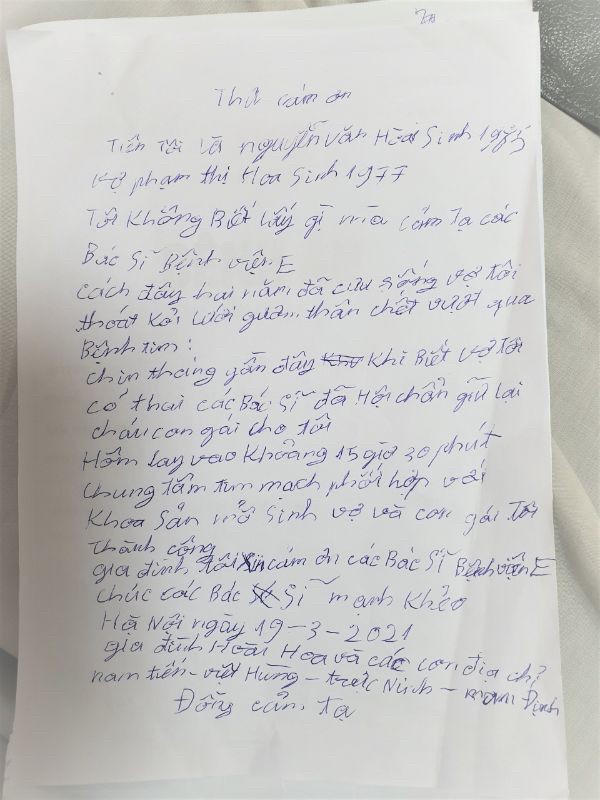 Thư cám ơn
Tiên Tôi là nguyễn văn Hoài Sinh
vợ phạm thị Hoa Sinh 1977
Tôi Không Biết lấy gì mà cảm tạ các
Bác Sĩ Bệnh viện E
cách đây hai năm đã cưu sống vợ tôi
thoát Kỏi lưỡi gươm thần chết vượt qua
Bệnh tim:
chín tháng gần đây Khi Biết vợ tôi
có thai các Bác Sĩ đã Hội chẩn giữ lại
cháu con gái cho tôi
Hôm lay vao Khoảng 15 giờ 30 phút
chung tâm tim mạch phối hợp với
Khoa Sản mở Sinh vợ và con gái tôi
thành công
gia đình tôi xin cám ơn các Bác Sĩ Bệnh viện E
chúc các Bác Sĩ mạnh Khẻo
Hà Nội ngày 19-3-2021
gia đình Hoài Hoa và các con địa chỉ
nam tiến - việt Hùng - trực Ninh - nam Định
Đồng cảm tạ